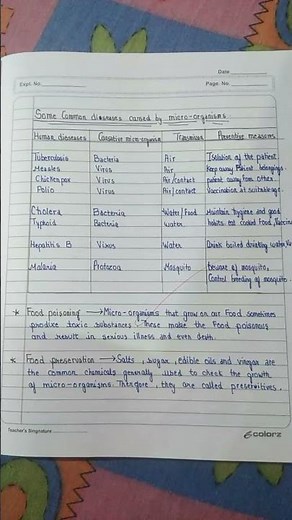 Date
Expt. No.
Page No.
Some Common diseases caused by micro-organisms
Human diseases Causative micro-organism Transmission Preventive measures
Tuberculosis Bacteria Air Isolation of the patient
Measles Virus Air Keep away Patient belongings
Chickenpox Virus Air/contact patient away from other.
Polio Virus Air/contact Vaccination at suitable age.
Cholera Bacteria Water/Food Maintain hygiene and good
Typhoid Bacteria water habits eat cooked food,
Hepatitis B Virus Water Drink boiled drinking water,
Malaria Protozoa Mosquito Beware of mosquito,
Control breeding of mosquito.
* Food poisoning → Micro-organisms that grow on our Food sometimes
produce toxic substances. These make the Food poisonous
and result in serious illness and even death.
* Food preservation → Salts, sugar, edible oils and vinegar are
the common chemicals generally used to check the growth
of micro-organisms. Therefore, they are called preservitives.
Teacher's Signature
colorz